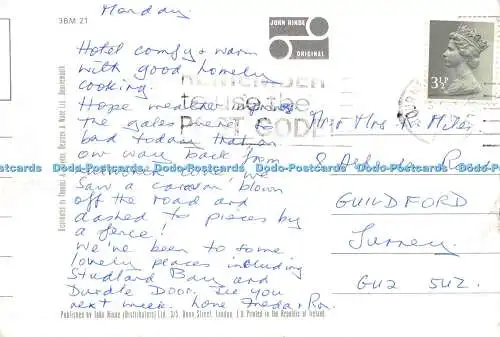 3BM 21
Monday.
Hotel comfy & warm
with good homely
cooking.
Hope weather improves
the gales were so
bad today that on
our way back from
we
saw a caravan blown
off the road and
dashed to pieces by
a fence!
We've been to some
lovely places including
Studland Bay and
Durdle Door. See you
next week. Love Freda + Ron.
JOHN HINDE
ORIGINAL
REMEMBER
to use the
POSTCODE
3½P
Mr & Mrs R. Miles
8
GUILDFORD
Surrey
GU2 5UZ.
Distributed by Thomas Benacci Ltd., London, Dearden & Wade Ltd. Bournemouth
Published by John Hinde (Distributors) Ltd. 3/5, Dunn Street, London, E.8 Printed in the Republic of Ireland.
Dodo-Postcards Dodo-Postcards Dodo-Postcards Dodo-Postcards Dodo-Postcards Dodo-Postcards